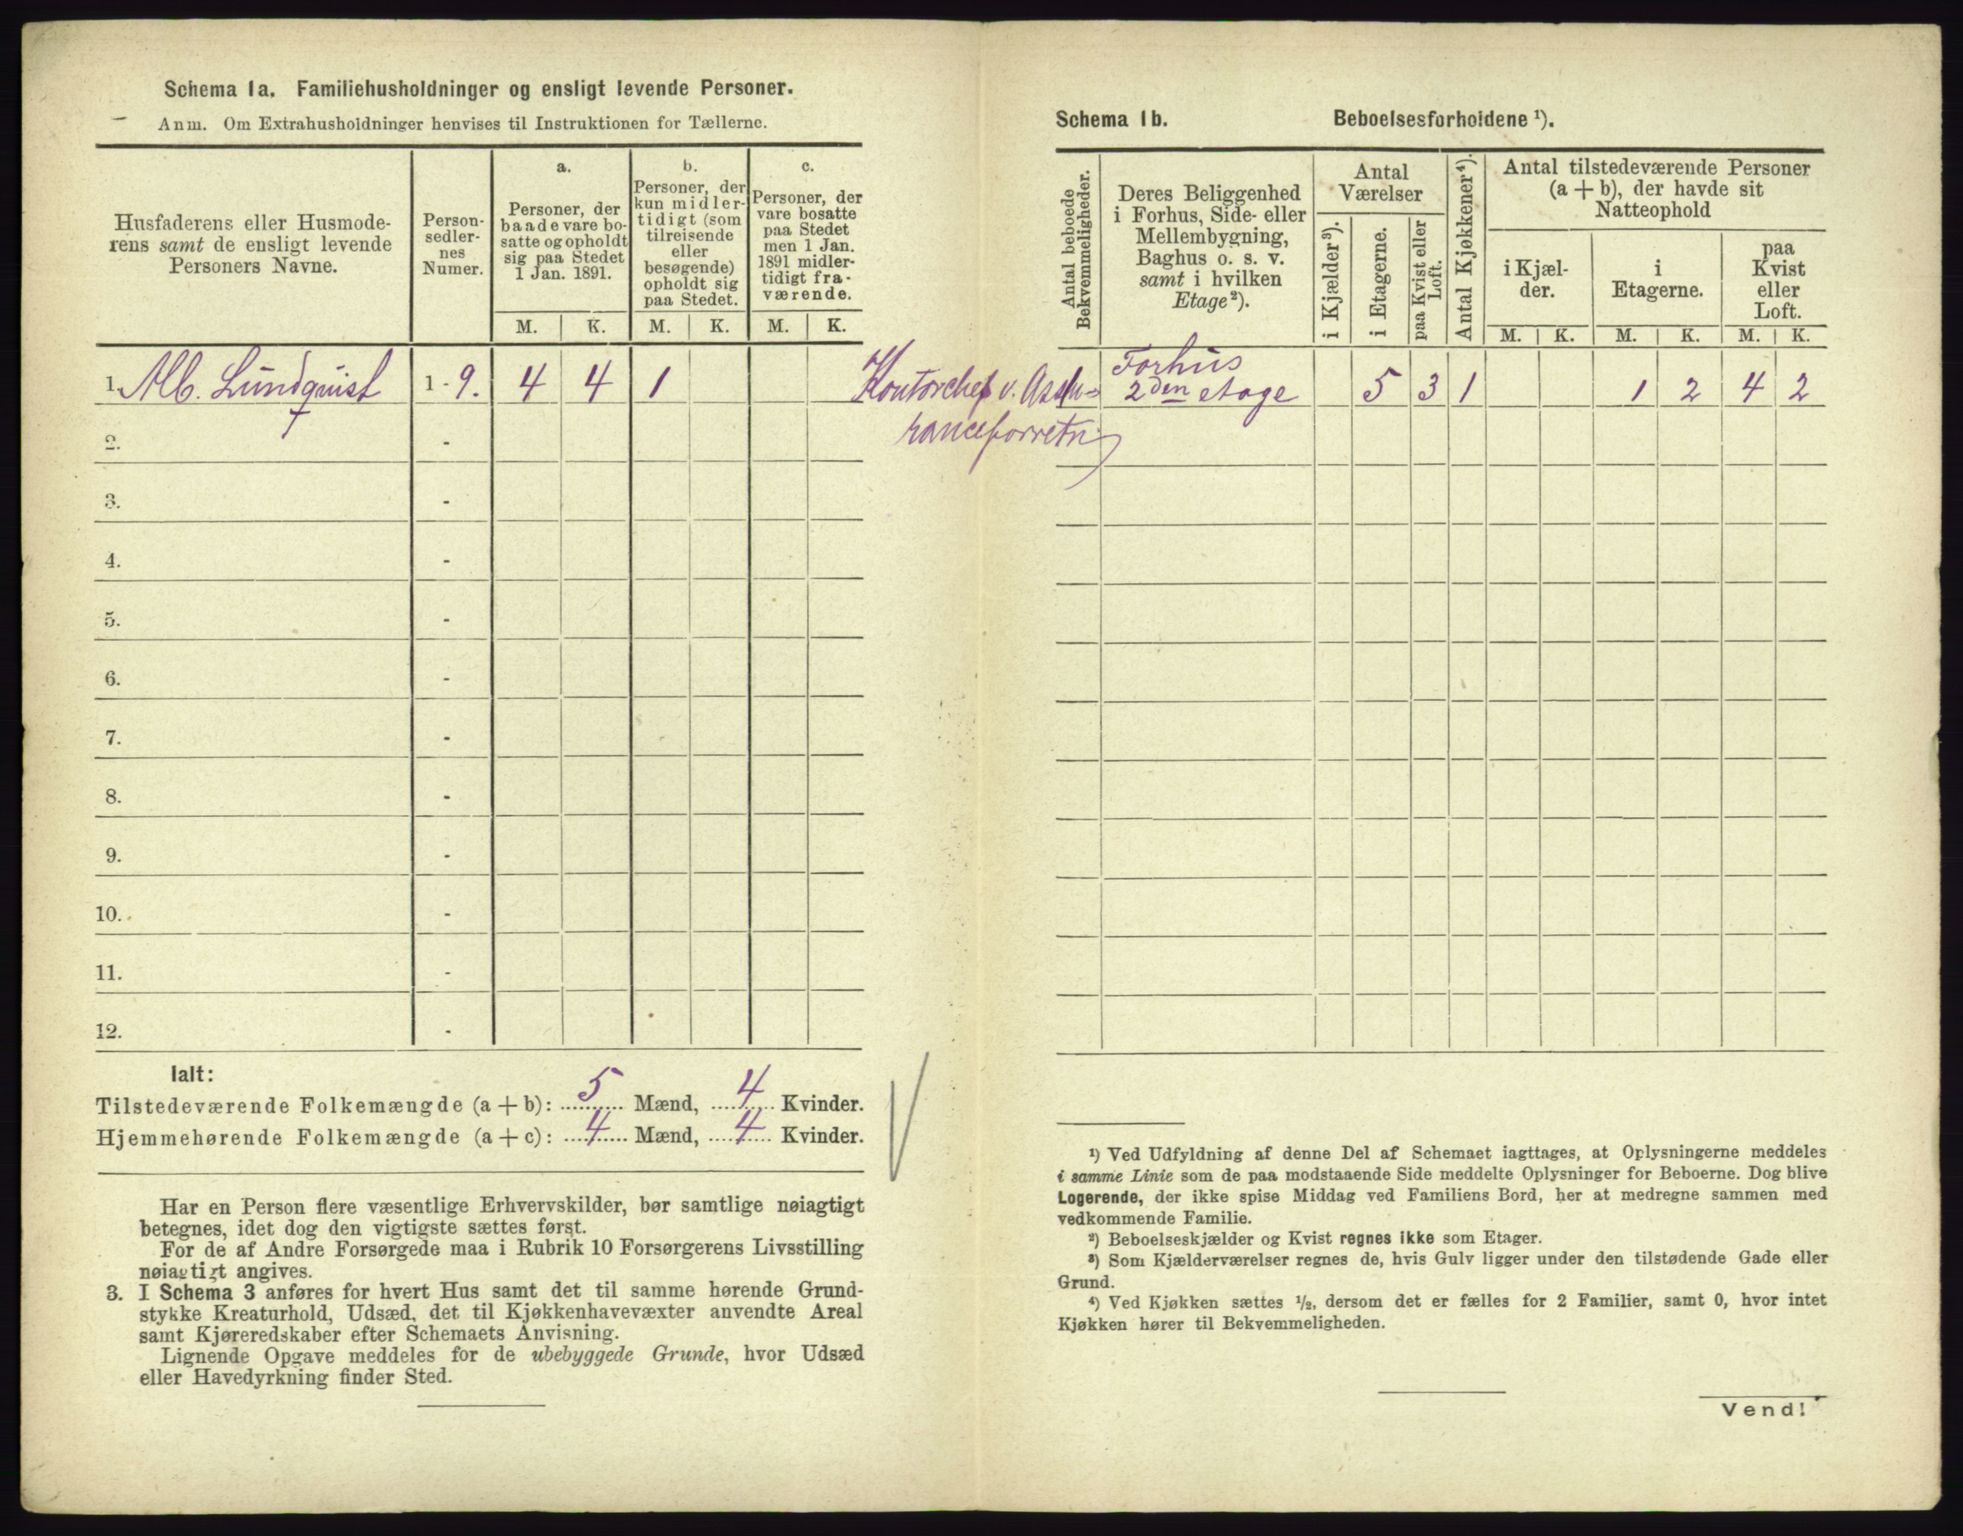 Schema 1a. Familiehusholdninger og ensligt levende Personer.
Anm. Om Extrahusholdninger henvises til Instruktionen for Tællerne.
Husfaderens eller Husmode-
rens samt de ensligt levende
Personers Navne.
Person-
sedler-
nes
Numer.
a.
Personer, der
baade vare bo-
satte og opholdt
sig paa Stedet
1 Jan. 1891.
b.
Personer, der
kun midler-
tidigt (som
tilreisende
eller
besøgende)
opholdt sig
paa Stedet.
c.
Personer, der
vare bosatte
paa Stedet
men 1 Jan.
1891 midler-
tidigt fra-
værende.
M. K. M. K. M. K.
1. Alb. Lundquist 1 - 9. 4 4 1
2. -
3. -
4. -
5. -
6. -
7. -
8. -
9. -
10. -
11. -
12. -
Ialt:
Tilstedeværende Folkemængde (a + b): 5 Mænd, 4 Kvinder.
Hjemmehørende Folkemængde (a + c): 4 Mænd, 4 Kvinder.
Har en Person flere væsentlige Erhvervskilder, bør samtlige nøiagtigt
betegnes, idet dog den vigtigste sættes først.
For de af Andre Forsørgede maa i Rubrik 10 Forsørgerens Livsstilling
nøiagtigt angives.
3. I Schema 3 anføres for hvert Hus samt det til samme hørende Grund-
stykke Kreaturhold, Udsæd, det til Kjøkkenhavevæxter anvendte Areal
samt Kjøreredskaber efter Schemaets Anvisning.
Lignende Opgave meddeles for de ubebyggede Grunde, hvor Udsæd
eller Havedyrkning finder Sted.
Schema 1b. Beboelsesforholdene ¹).
Antal beboede
Bekvemmeligheder.
Deres Beliggenhed
i Forhus, Side- eller
Mellembygning,
Baghus o. s. v.
samt i hvilken
Etage²).
Antal
Værelser
i Kjælder³).
i Etagerne.
paa Kvist eller
Loft.
Antal Kjøkkener⁴).
Antal tilstedeværende Personer
(a + b), der havde sit
Natteophold
i Kjæl-
der.
i
Etagerne.
paa
Kvist
eller
Loft.
M. K. M. K. M. K.
Kontorchef v. Assu=
ranceforretn
Forhus
2den etage 5 3 1 1 2 4 2
¹) Ved Udfyldning af denne Del af Schemaet iagttages, at Oplysningerne meddeles
i samme Linie som de paa modstaaende Side meddelte Oplysninger for Beboerne. Dog blive
Logerende, der ikke spise Middag ved Familiens Bord, her at medregne sammen med
vedkommende Familie.
²) Beboelseskjælder og Kvist regnes ikke som Etager.
³) Som Kjælderværelser regnes de, hvis Gulv ligger under den tilstødende Gade eller
Grund.
⁴) Ved Kjøkken sættes ½, dersom det er fælles for 2 Familier, samt 0, hvor intet
Kjøkken hører til Bekvemmeligheden.
Vend!